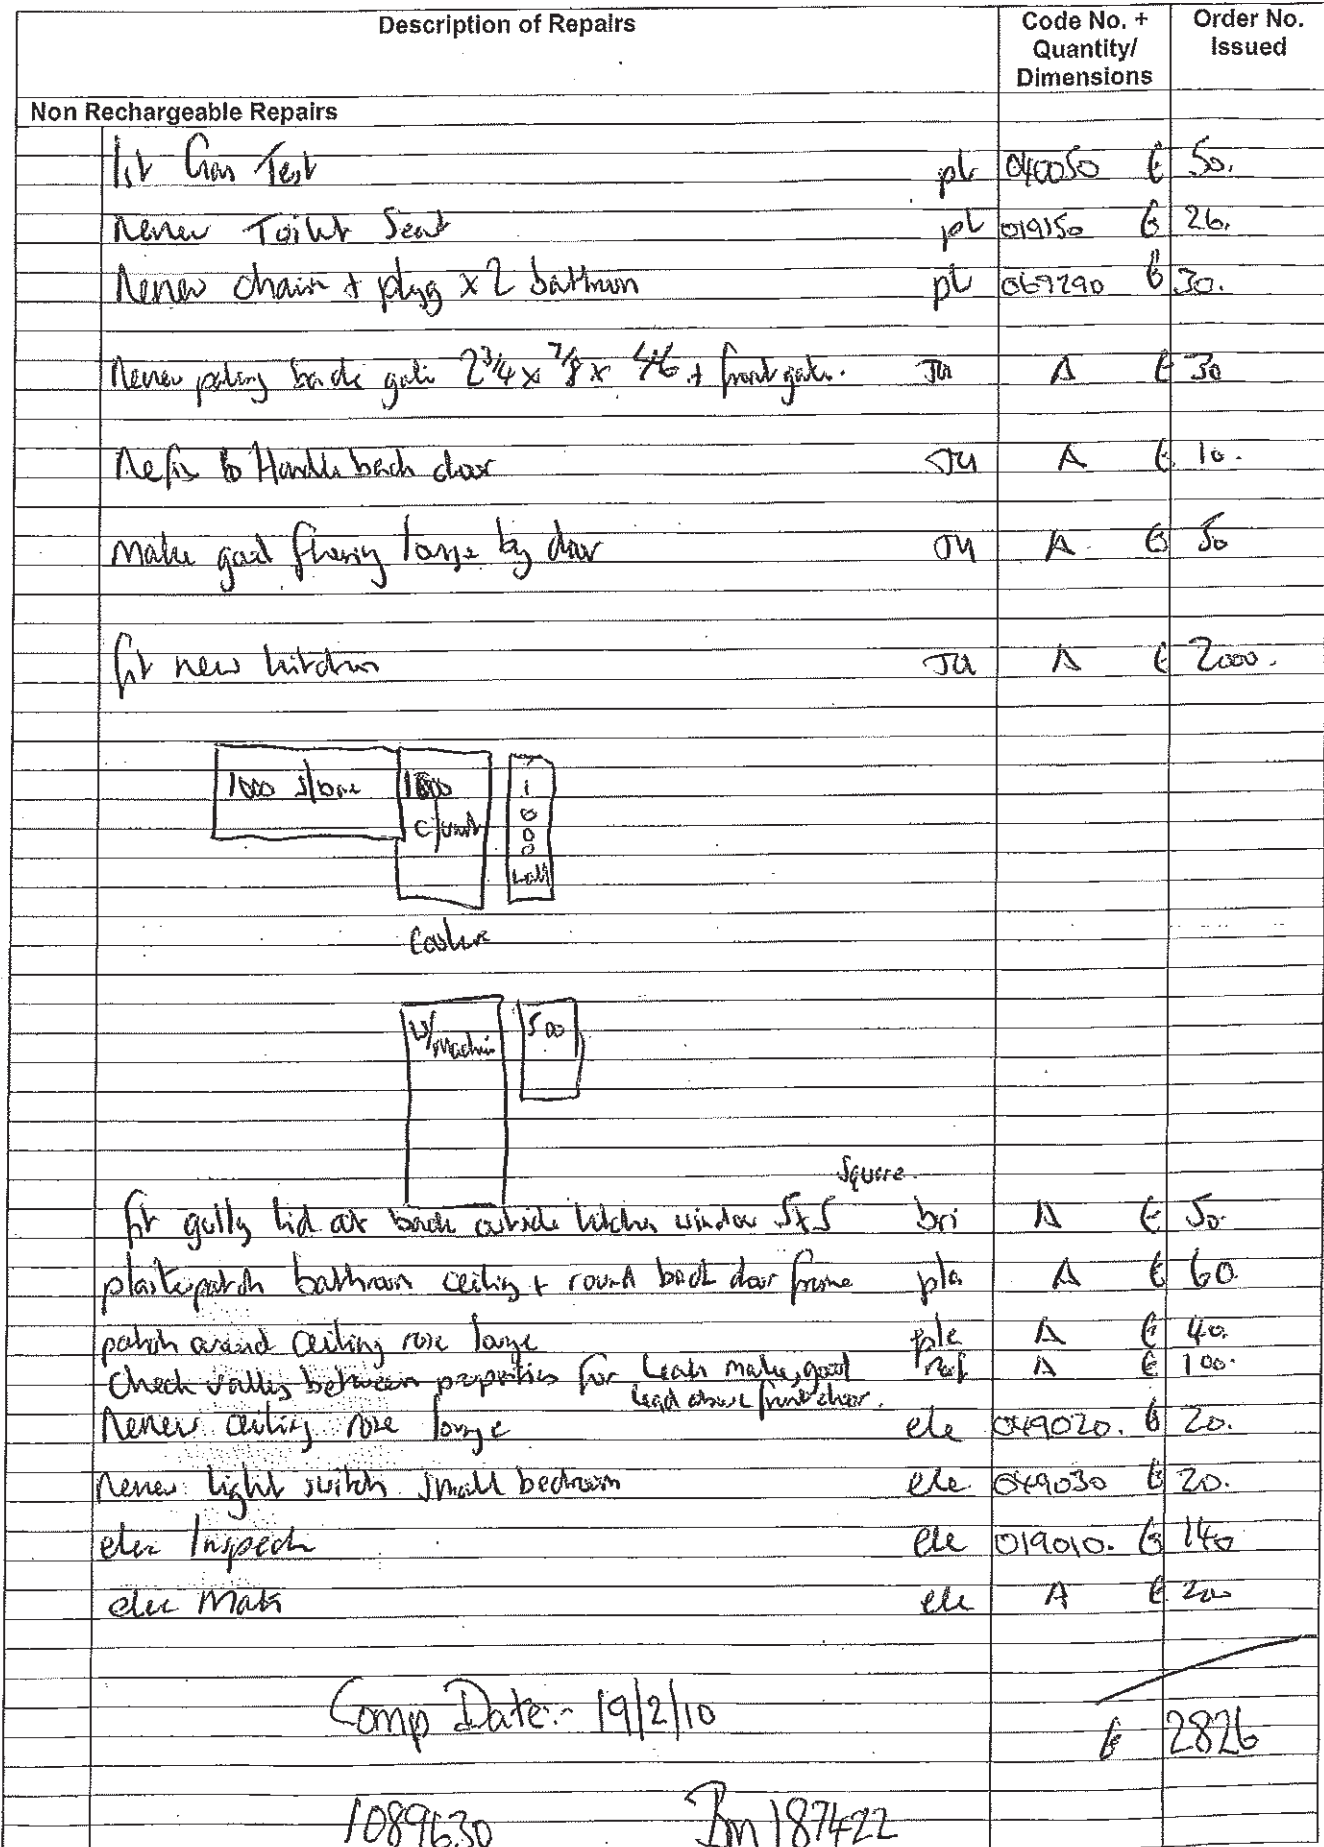 Description of Repairs
Code No. +
Quantity/
Dimensions
Order No.
Issued
Non Rechargeable Repairs
1st Gas Test pl 040050 £ 50.
Renew Toilet Seat pl 019150 £ 26.
Renew chain + plug x 2 bathroom pl 069290 £ 30.
Renew paling back gate 2 3/4 x 7/8 x + front gate. A £ 30
Refix Handle back door A £ 10.
Make good lounge by door A £ 50
fit new kitchen A £ 2000.
1000 s/base
1000
c/unit
1000
wall
Cooker
W/Machin
500
Square.
fit gully lid at back outside kitchen window 5x5 bri A £ 50.
plaster patch bathroom ceiling + round back door frame pla A £ 60
patch around ceiling rose lounge pla A £ 40.
Check valley between properties for leak make good A £ 100.
lead above front door.
Renew ceiling rose lounge ele 049020. £ 20.
Renew light switch small bedroom ele 049030 £ 20.
elec Inspect ele 019010. £ 140
elec ele A £ 200
Comp Date:- 19/2/10
£ 2826
1089630 Bm 187422